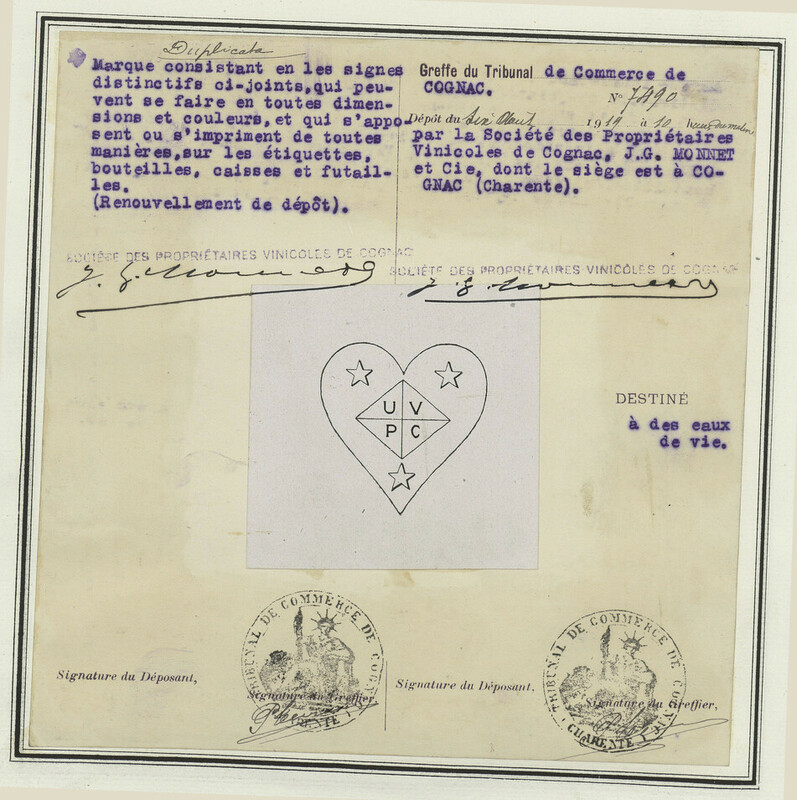 Duplicata
Marque consistant en les signes
distinctifs ci-joints,qui peu-
vent se faire en toutes dimen-
sions et couleurs,et qui s'appo-
sent ou s'impriment de toutes
manières,sur les étiquettes,
bouteilles, caisses et futail-
les.
(Renouvellement de dépôt).
SOCIÉTÉ DES PROPRIÉTAIRES VINICOLES DE COGNAC
J. G. Monnet
Greffe du Tribunal de Commerce de
COGNAC.
N° 7490
Dépôt du Six Août 1919 à 10 heures du matin
par la Société des Propriétaires
Vinicoles de Cognac, J.G. MONNET
et Cie, dont le siège est à CO-
GNAC (Charente).
SOCIÉTÉ DES PROPRIÉTAIRES VINICOLES DE COGNAC
J. G. Monnet
U V
P C
DESTINÉ
à des eaux
de vie.
Signature du Déposant,
TRIBUNAL DE COMMERCE DE COGNAC
CHARENTE
Signature du Greffier,
Signature du Déposant,
TRIBUNAL DE COMMERCE DE COGNAC
CHARENTE
Signature du Greffier,